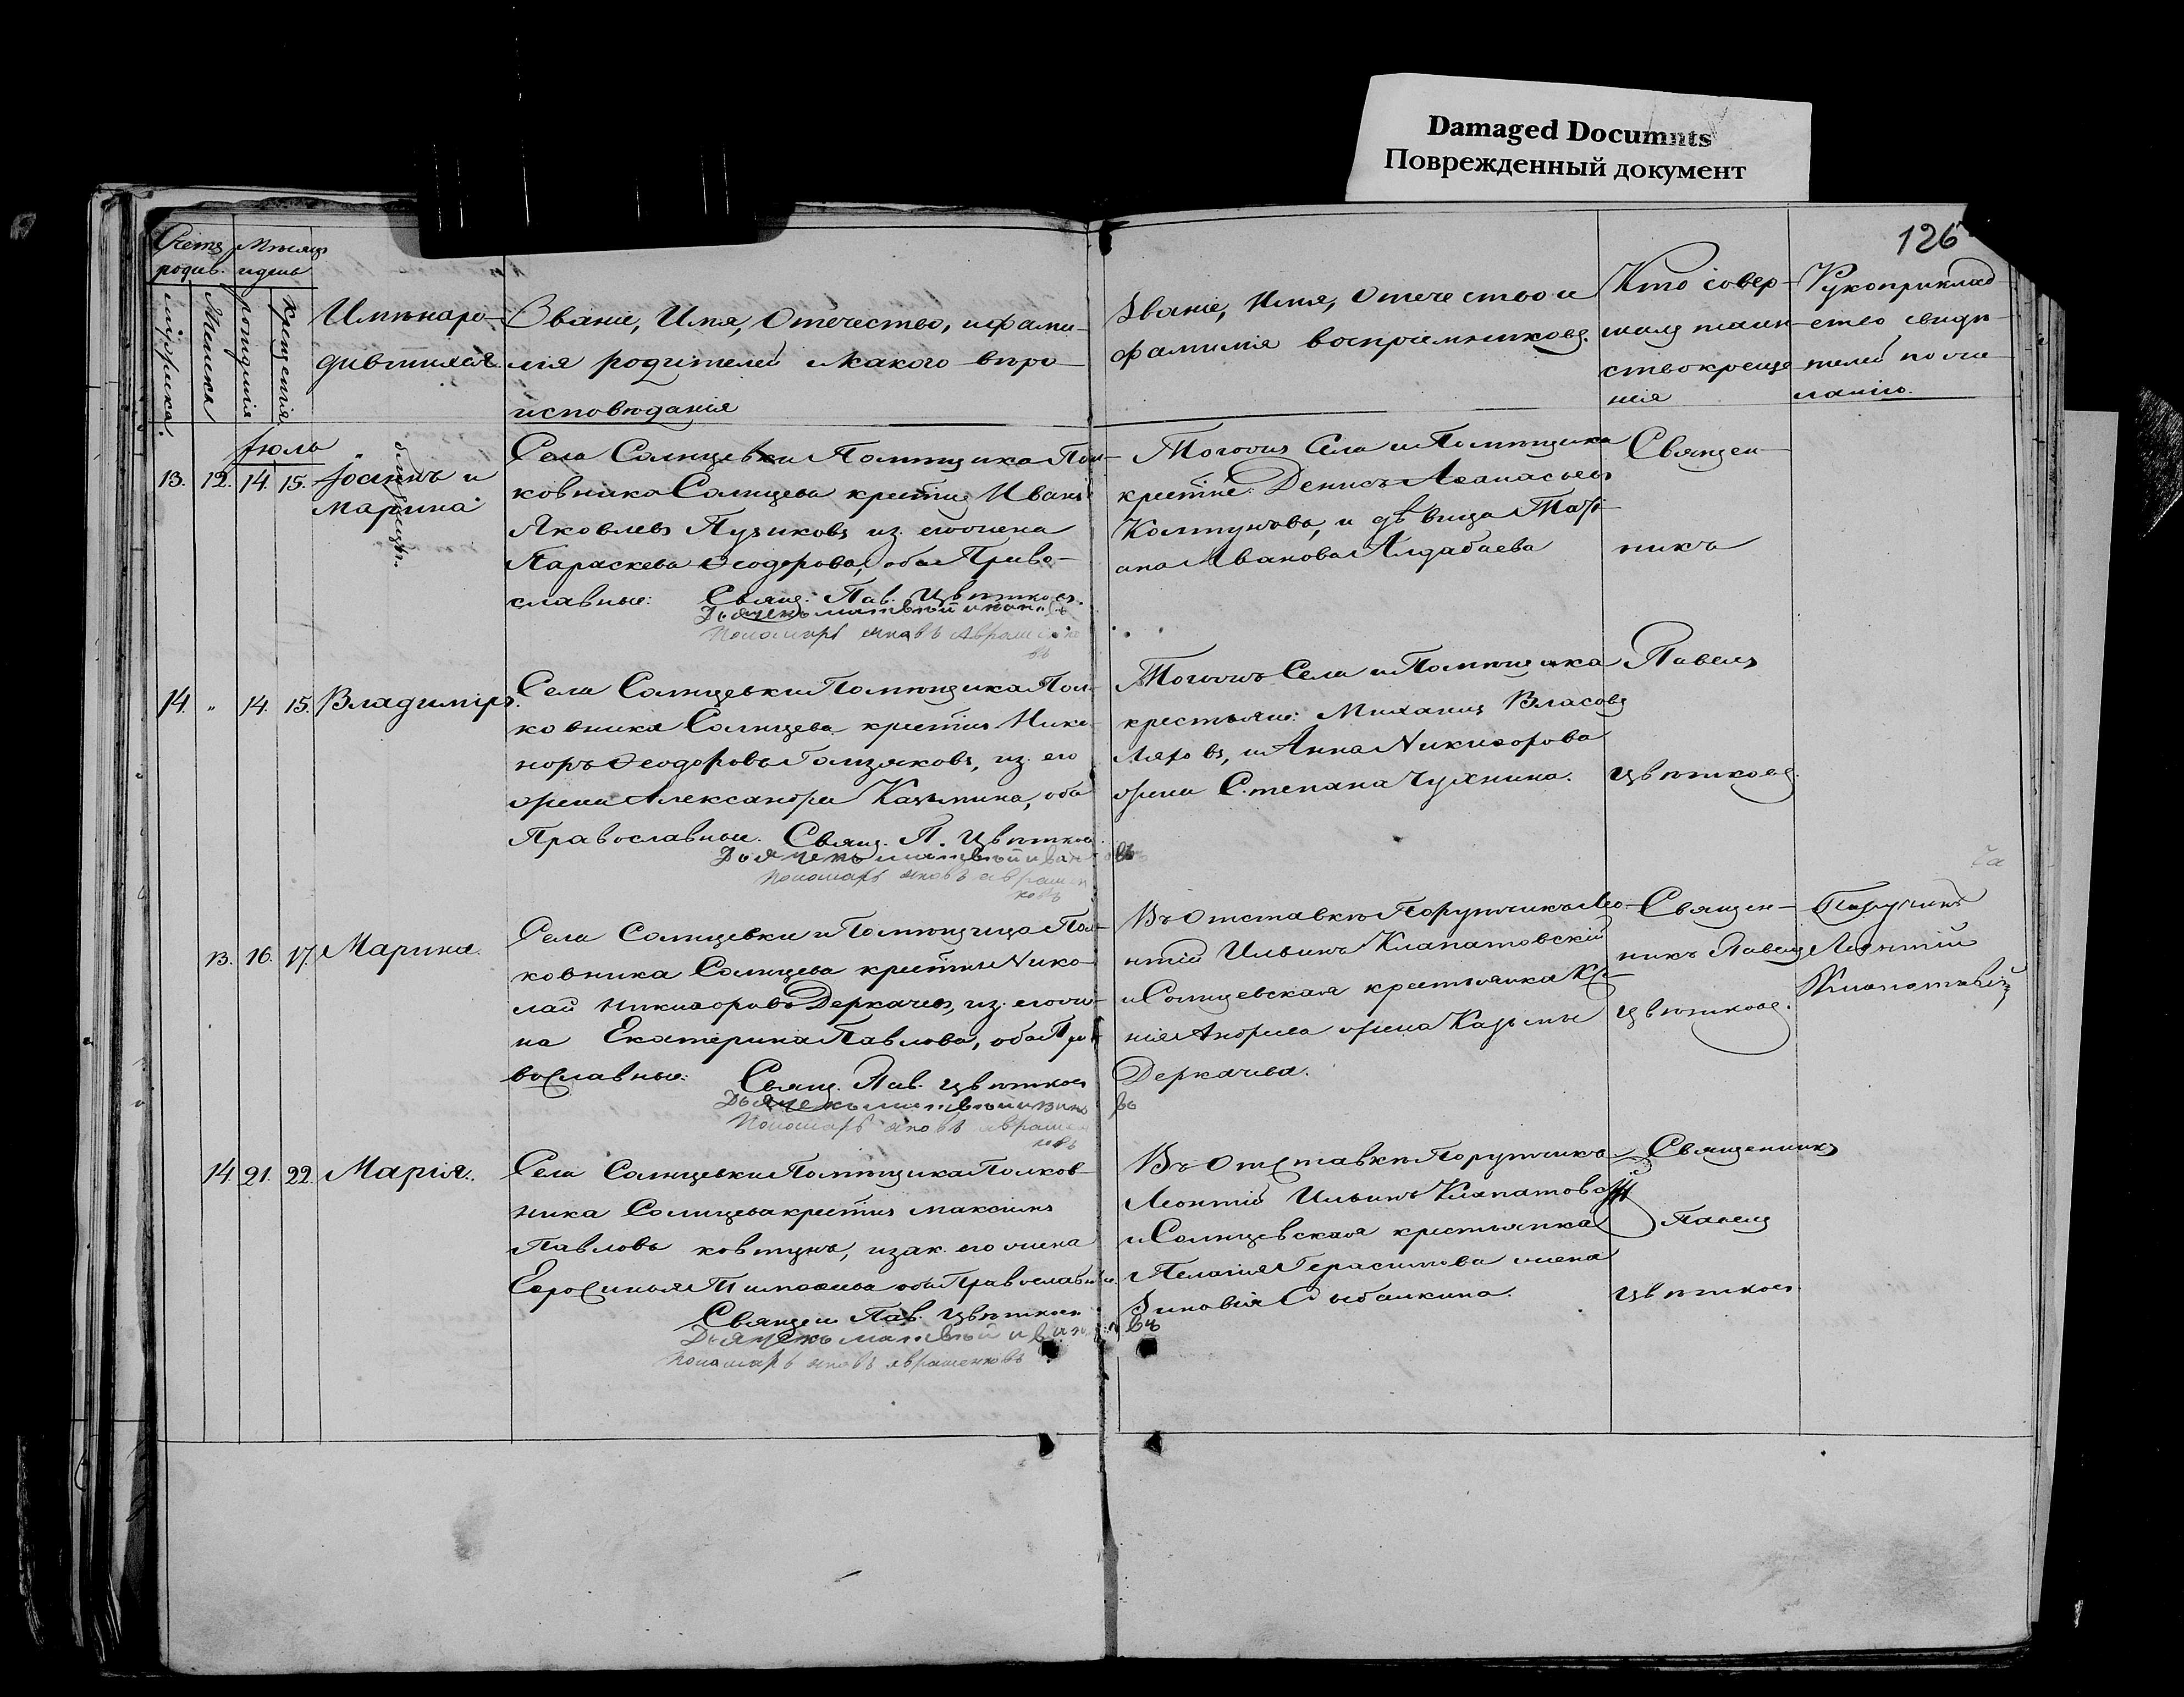 Damaged Documnts
Поврежденный документ
126
Счетъ
родив.
Мѣсяцъ
и день
мужеска.
Женска
рожденія
крещенія
Имѣнаро-
дившихся.
Званіе, Имя, Отечество, и фами-
лія родителей и какого вѣро-
исповѣданія
Званіе, Имя, Отечество и
фамилія воспріемниковъ.
Кто совер-
шалъ таин-
ство креще
нія
Рукоприклад
ство свидѣ-
телей по же-
ланію.
Іюль
13. 12. 14. 15. Іоаннъ и
Марина
близнецы.
Села Солнцевки Помѣщика Пол-
ковника Солнцева крестнъ Иванъ
Яковлевъ Пузиковъ из. его жена
Параскева Ѳеодорова, оба Право-
славные: Свящ. Пав. Цвѣтковъ.
Дьячекъ матвѣй
Пономарь яковъ Авраменко
въ
Тогожъ Села и Помѣщика
крестне: Денисъ Аѳанасьевъ
Колтунова, и дѣвица Тать-
яна Иванова Алдабаева
Священ-
никъ
14. " 14. 15. Владимiръ.
Села Солнцевки Помѣщика Пол-
ковника Солнцева крестнъ Нике-
норъ Ѳеодоровъ Гомзяковъ, из. его
жена Александра Казьмина, оба
Православные. Свящ. П. Цвѣтков.
Дьячекъ матвѣй иванововъ
Пономарь яковъ аврамен
ковъ
Тогожъ Села и Помѣщика
крестьяне: Михаилъ Власовъ
Ляховъ, и Анна Никиѳорова
жена Степана Чухнина.
Павелъ
Цвѣтковъ.
13. 16. 17. Марина.
Села Солнцевки и Помѣщица Пол-
ковника Солнцева крестнъ Нико-
лай Никиѳоровъ Деркачевъ, из. его же-
на Екатерина Павлова, оба Пра-
вославные: Свящ. Пав. Цвѣтковъ
Дьячекъ матвѣй ивановъ
Пономарь яковъ аврамен
ковъ
Въ Отставкѣ Порутчикъ Лео-
нтій Ильинъ Клапатовскій
и Солнцевская крестьянка Ксе-
нія Андреева жена Казьмы
Деркачева.
Священ-
никъ Павелъ
Цвѣтковъ.
Порутчикъ
Леонтій
14. 21. 22. Марія.
Села Солнцевки Помѣщика Полков-
ника Солнцева крестнъ Максимъ
Павловъ Ковтунъ, и зак. его жена
Евросинья Тимоѳеева оба Православные.
Священ. Пав. Цвѣтковъ
Дьячекъ матвѣй ивановъ
Пономарь яковъ авраменковъ
Въ Отставкѣ Порутчикъ
Леонтій Ильинъ Клапатовскій
и Солнцевская крестьянка
Пелагія Герасимова жена
Зиновія Сыбалкина.
Священникъ
Павелъ
Цвѣтковъ.